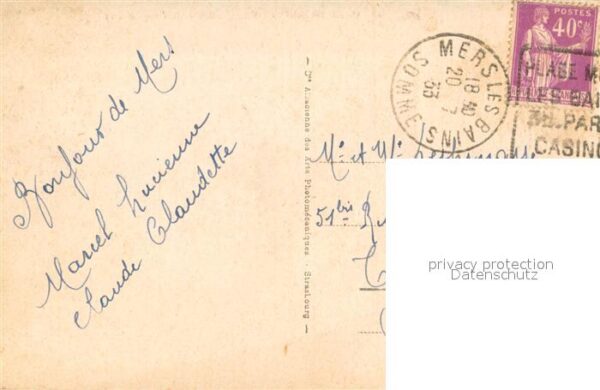 Bonjour de Mers
Marcel Lucienne
Claude Claudette
Cie Alsacienne des Arts Photomécaniques - Strasbourg
POSTES
40c
MERS LES BAINS
SOMME
18 40
20 7
33
PLAGE M
LES BAI
3H. PAR
CASINO
Mr et Me
51bis Ru
privacy protection
Datenschutz